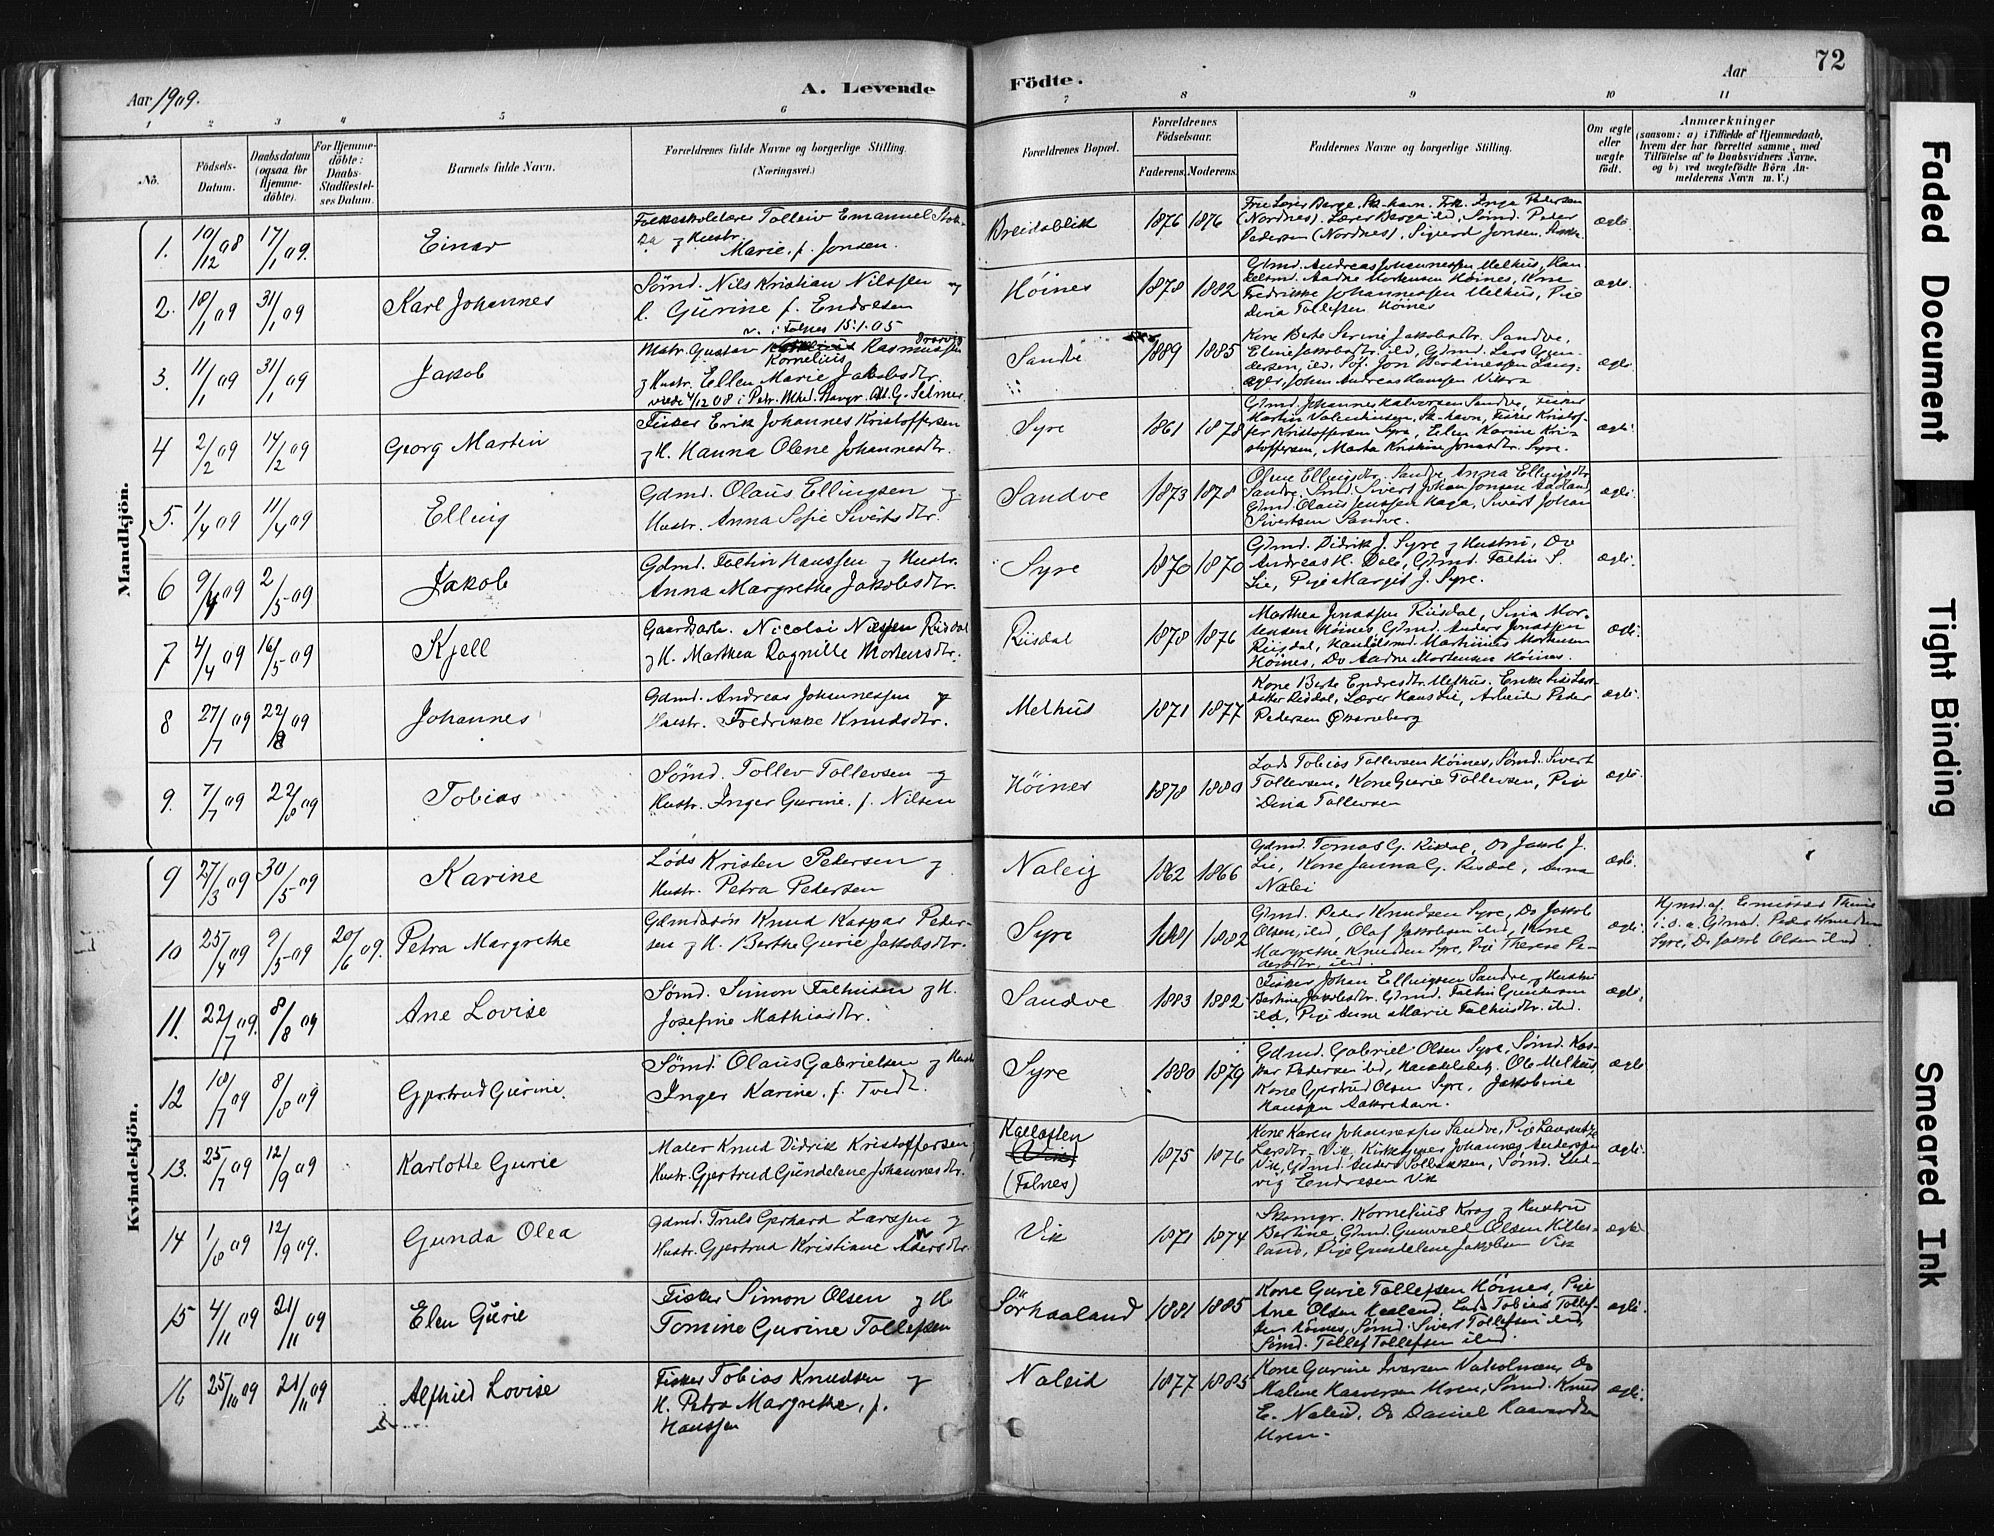 72
Aar 1909.
A. Levende
Födte.
Aar
1 2 3 4 5 6 7 8 9 10 11
No.
Födsels-
Datum.
Daabsdatum
(ogsaa for
Hjemme-
döbte).
For Hjemme-
döbte:
Daabs-
Stadfæstel-
ses Datum.
Barnets fulde Navn.
Forældrenes fulde Navne og borgerlige Stilling.
(Næringsvei.)
Forældrenes Bopæl.
Forældrenes
Födselsaar.
Faderens. Moderens.
Faddernes Navne og borgerlige Stilling.
Om ægte
eller
uægte
födt.
Anmærkninger
(saasom: a) i Tilfælde af Hjemmedaab,
hvem der har forrettet samme, med
Tilföielse af to Daabsvidners Navne,
og b) ved uægtefödte Börn An-
melderens Navn m. V.)
Mandkjön.
1. 10/12 08 17/1 09. Einar
Folkeskolelærer Tolleiv Emanuel
og Hustr.
Marie f. Jonsen.
Breidablik 1876 1876
Pedersen (Nordnes), Sigurd Jonsen
ægte.
2. 18/1 09 31/1 09 Karl Johannes
Sömd. Nils Kristian Nilssen og
Gurine f. Endresen
v. i Falnes 15.1.05
Höines 1878 1882
Gdmd. Andreas Johannessen Melhus, Han-
delsmd. Aadne Mortensen Höines, Kone
Fredrikke Johannessen Melhus, Pige
Dina Tollefsen Höines
ægte.
3. 11/1 09 31/1 09 Jakob
Matr. Gustav Kornelius Rasmussen
og Hustr. Ellen Marie Jakobsdtr.
viede 4/12 08 i Petr. Mhd. Stavgr. Alf. G. Selmer.
Sandve 1889 1885
Kone Berte Serine Jakobsdtr. Sandve,
Eline Jakobsdtr. ibd, Gdmd. Lars Gun-
dersen, ibd.
aager, Johan Andreas Hansen Vikra
ægte.
4 2/2 09 14/2 09 Georg Martin
Fisker Erik Johannes Kristoffersen
og H. Hanna Olene Johannesdtr.
Syre 1861 1878
Gdmd. Johannes Halvorsen Sandve, Fisker
Martin Valentinsen, Sk-havn, Fisker Kristof-
fer Kristoffersen Syre, Elen Karine Kri-
stoffersen, Marta Kristine Jonasdtr. Syre.
ægte.
5. 1/4 09 11/4 09 Elling
Gdmd. Olaus Ellingsen og
Hustr. Anna Sofie Sivertsdtr.
Sandve 1873 1878
Oline Ellingsdtr. Sandve, Anna Ellingsdtr.
Sandve. Smd. Sivert Johan Jonsen Aadland,
Gdmd. Olaus Jenssen Haga, Sivert Johan
Sivertsen Sandve.
ægte.
6 9/4 09 2/5 09 Jakob
Gdmd. Faltin Hanssen og Hustr.
Anna Margrethe Jakobsdtr.
Syre 1870 1870
Gdmd. Didrik J. Syre og Hustru, Do
Andreas H. Dale, Gdmd. Faltin S.
Lie, Pige Margit J. Syre.
ægte.
7 4/4 09 16/5 09 Kjell
Gaardarb. Nicolai Nilssen Risdal
og H. Marthea Ragnille Mortensdtr.
Risdal 1878 1876
Marthea Jonassen Risdal, Sina Mor-
tensen Höines, Gdmd. Anders Jonassen
Risdal, Handelsmd. Martinius Mortensen
Höines, Do Aadne Mortensen Höines.
ægte.
8 27/7 09 22/8 09 Johannes
Gdmd. Andreas Johannessen og
Hustr. Fredrikke Knudsdtr.
Melhus 1871 1877
Kone Berte Endresdtr. Melhus, Enke
Risdal, Lærer Hans Lie, Arbeider Peder
Pedersen Qvarneberg
ægte.
9. 7/7 09 22/8 09 Tobias
Sömd. Tollev Tollevsen og
Hustr. Inger Gurine, f. Nilsen
Höines 1878 1880
Lods Tobias Tollevsen Höines, Sömd. Sivert
Tollevsen, Kone Gurie Tollevsen, Pige
Dina Tollevsen
ægte.
Kvindekjön.
9 27/3 09 30/5 09 Karine
Lods Kristen Petersen og
Hustr. Petra Pedersen
Naleig 1862 1866
Gdmd. Tomas G. Risdal, Do Jakob J.
Lie, Kone Janna G. Risdal, Anna
Nalei
ægte.
10 25/4 09 9/5 09 20/6 09. Petra Margrethe
Gdmdssön Knud Kaspar Peder-
sen og H. Berthe Gurie Jakobsdtr.
Syre 1881 1882
Gdmd. Peder Knudsen Syre, Do Jakob
Olsen, ibd, Olaf Jakobsen ibd, Kone
Margrethe Knudsen Syre, Pige Therese Pe-
dersdtr, ibd
ægte.
Gdmd. Peder Knudsen
Syre, Do Jakob Olsen ibd
11. 22/7 09. 8/8 09 Ane Lovise
Sömd. Simon Faltinsen og H.
Josefine Mathiasdtr.
Sandve 1883 1882
Fisker Johan Ellingsen Sandve og Hustru
Bertine Jakobsdtr. Gdmd. Faltin Gundersen
ibd, Pige Anne Marie Faltinsdtr. ibd.
ægte.
12 10/7 09 8/8 09 Gjertrud Gurine.
Sömd. Olaus Gabrielsen og Hustr
Inger Karine, f. Tvedt.
Syre 1880 1879
Gdmd. Gabriel Olsen Syre, Sömd. Kas-
par Pedersen ibd, Ole Melhus,
Kone Gjertrud Olsen Syre, Jakobine
Hanssen Aakrehavn.
ægte
13. 25/7 09 12/9 09 Karlotte Gurie
Maler Knud Didrik Kristoffersen
Hustr. Gjertrud Gundelene Johannesdtr.
Kallosten
(Falnes) 1875 1876
Kone Karen Johannessen Sandve, Pige
Larsdtr. Vik, Kirkesanger Johannes Anderssen
Vik, Gdmd. Anders Solbakken, Sömd. Lud-
vig Endresen Vik
ægte.
14 1/8 09 12/9 09. Gunda Olea
Gdmd. Truls Gerhard Larssen og
Hustr. Gjertrud Kristiane Andersdtr.
Vik 1871 1874
Skomgr. Kornelius Krog og Hustru
Bertine, Gdmd. Gunvald Olsen Hilles-
land, Pige Gundelene Jakobsen Vik
ægte
15 4/11 09 21/11 09 Elen Gurie
Fisker Simon Olsen og H.
Tomine Gurine Tollefsen
Sörhaaland 1881 1885
Kone Gurie Tollefsen Höines, Pige
Ane Olsen Haaland, Lods Tobias Tollef-
sen Höines, Sömd. Sivert Tollefsen ibd,
Sömd. Tollef Tollefsen ibd.
ægte.
16 25/10 09 21/11 09 Alfhild Lovise
Fisker Tobias Knudsen og
H. Petra Margrethe, f.
Hanssen
Naleid 1877 1885
Kone Gurine Iversen Vaholmen, Do
Malene Kaarersen Uren, Sömd. Knud
E. Naleid, Do Daniel Kaarersen
Uren.
ægte.
Faded Document
Tight Binding
Smeared Ink